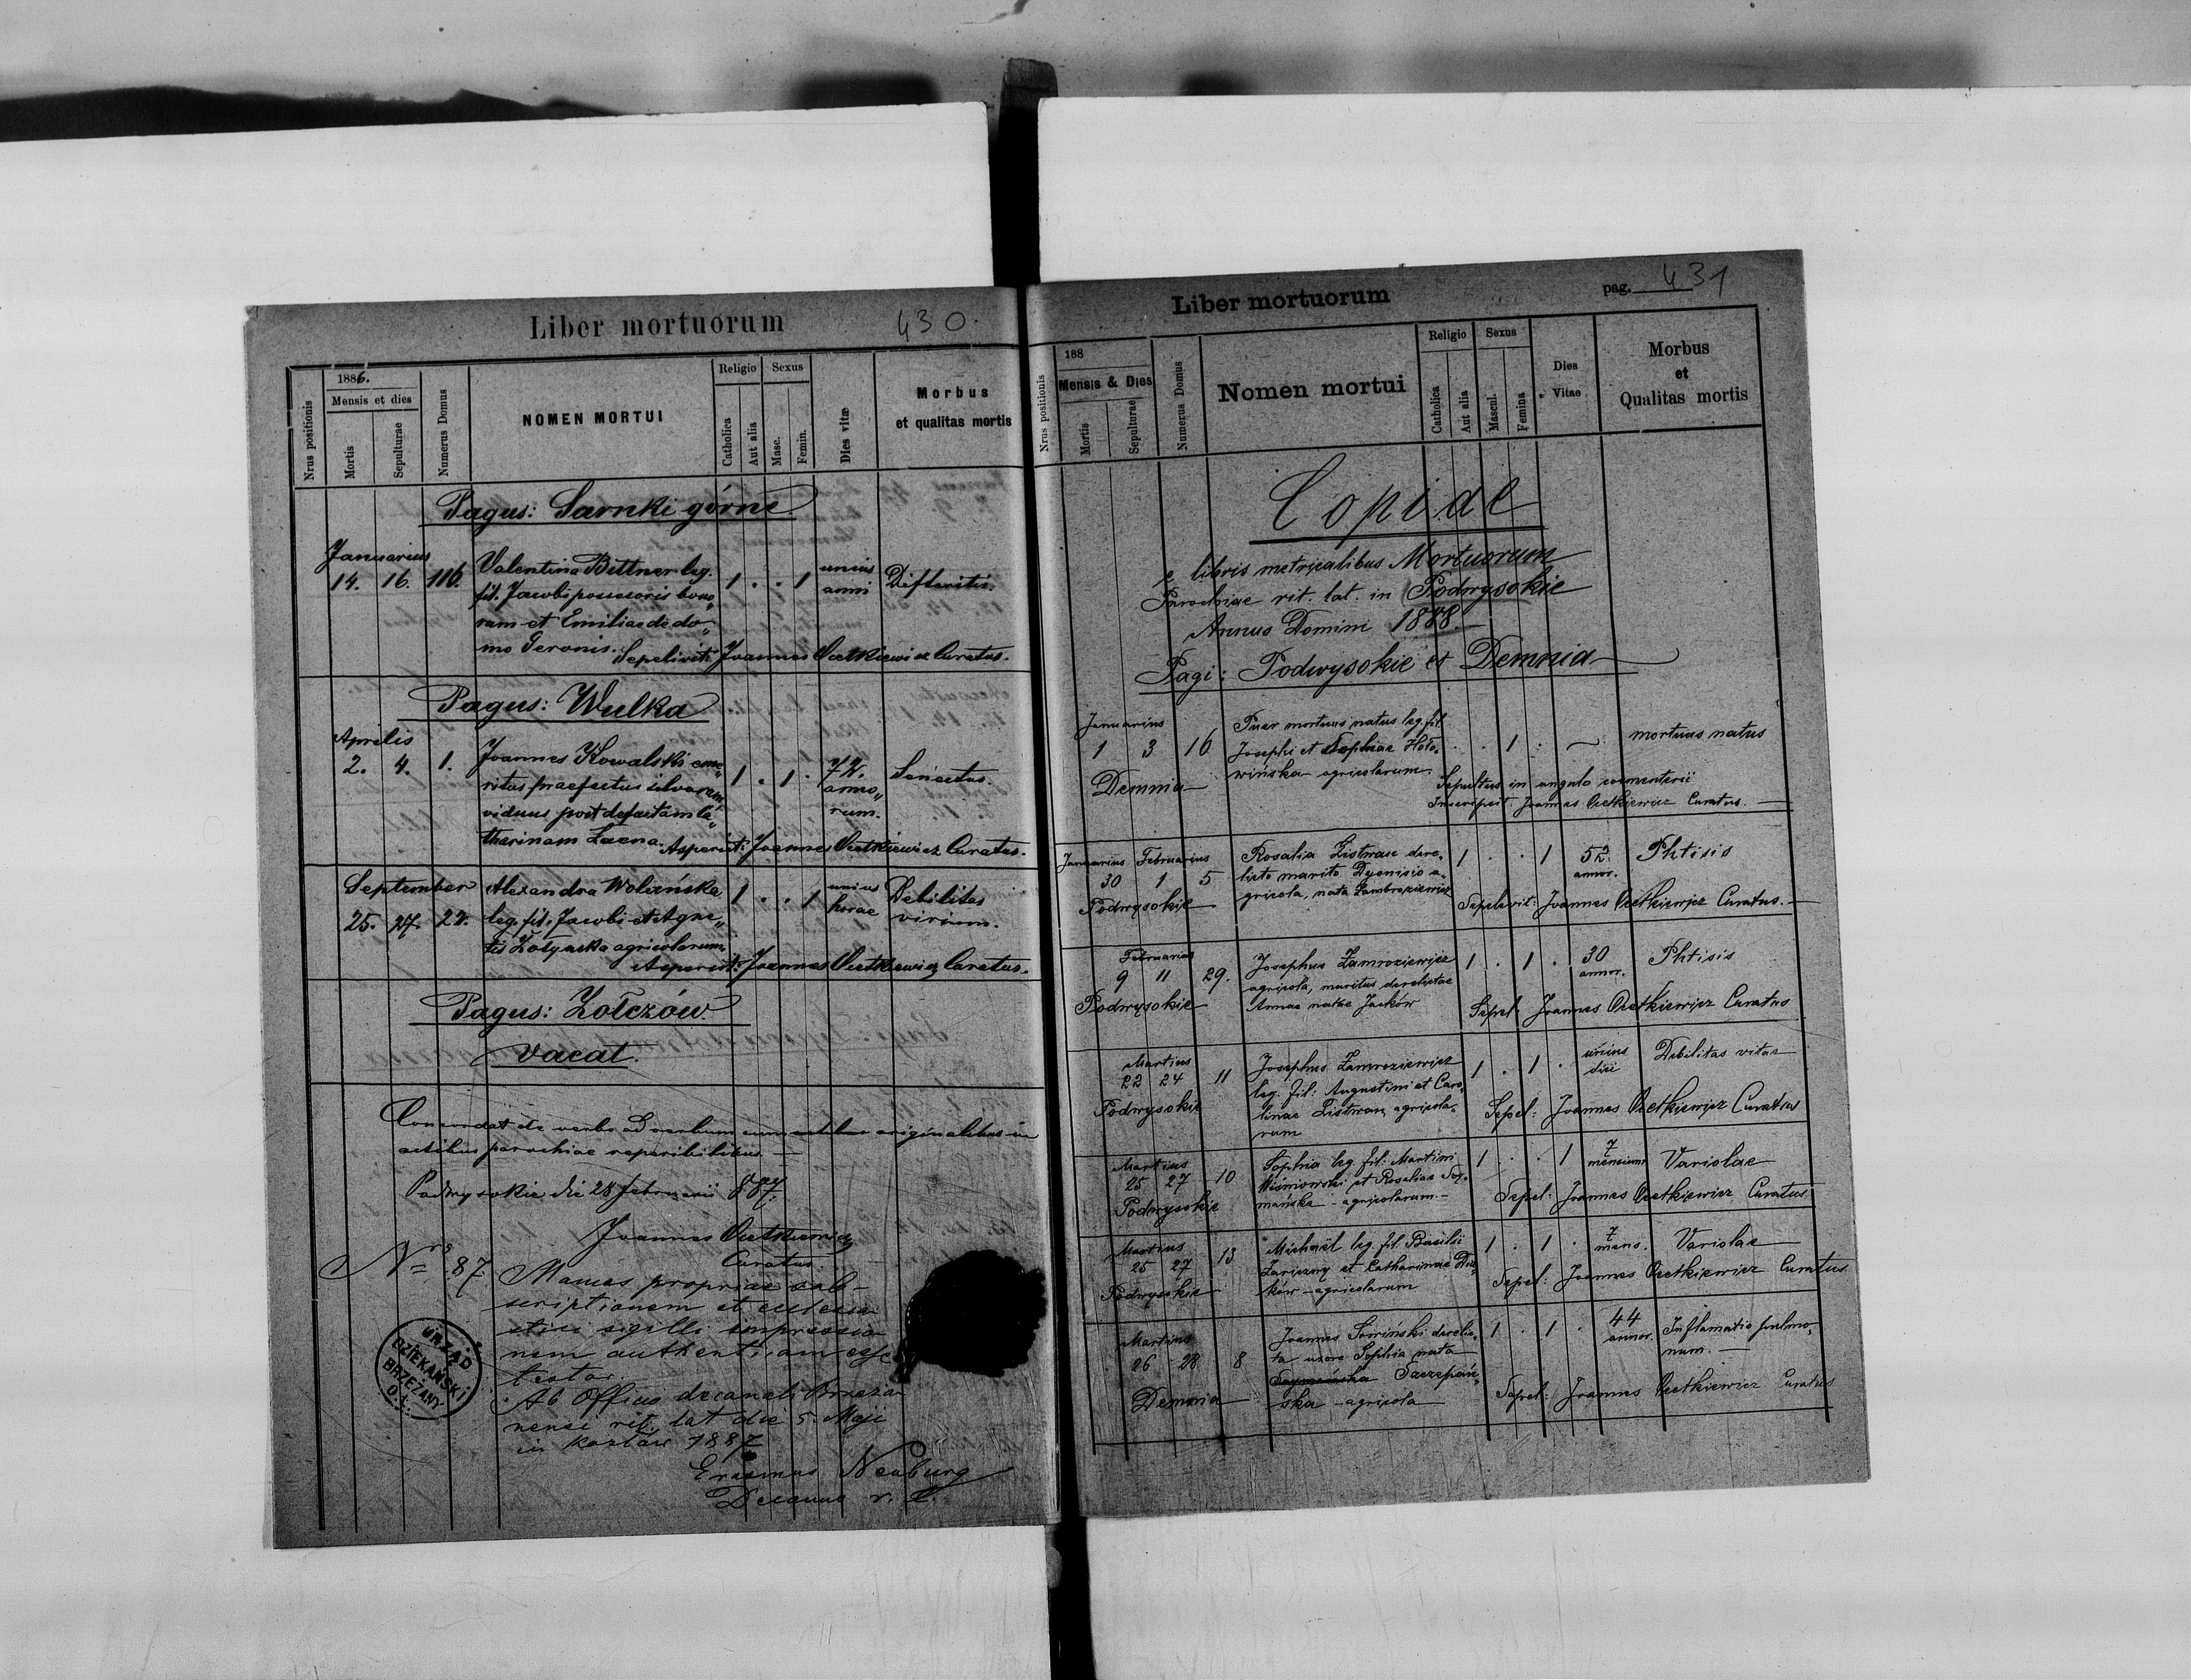 Liber mortuorum
430.
Nrus positionis
1886.
Mensis et dies
Mortis
Sepulturae
Numerus Domus
NOMEN MORTUI
Religio
Catholica
Aut alia
Sexus
Masc.
Femin.
Dies vitæ
Morbus
et qualitas mortis
Pagus: Sarnki górne
Januarius
14. 16. 116. Valentina Bittner leg. 1 . . 1 unius anni Difteritis.
fil. Jacobi possessoris bono„
rum et Emiliae de do„
mo Geronis. Sepelivit: Joannes Oretkiewicz Curatus.
Pagus: Wulka
Aprilis
2. 4. 1. Joannes Kowalski eme„ 1 . 1 . 72. anno„ rum. Senectus.
ritus praefectus silvarum
viduus post defunctam Ca„
tharinam Lacna. Asperit: Joannes Oretkiewicz Curatus.
September
25. 27. 22. Alexandra Wolańska 1 . . 1 unius horae Debilitas virium.
leg. fil. Jacobi et Agne„
tis Zołyńska agricolarum
Asperit: Joannes Oretkiewicz Curatus.
Pagus: Zołczów.
Vacat.
Concordat de verbo ad verbum cum actibus originalibus in
actibus parochiae reperibilibus.
Podwysokie die 28 februarii 887.
Joannes Oretkiewicz
Curatus.
Nro 87
Manus propriae sub-
scriptionem et ecclesia
stici sigilli impressio
nem authenticam esse
testor.
Ab Officio decanali Brzeża
nensi rit. lat die 5. Maji
in Kozłów 1887
Erasmus Neuburg
Decanus r. l.
URZĄD
DZIEKAŃSKI
BRZEŻANY
O. Ł.
Liber mortuorum
pag. 431
Nrus positionis
188
Mensis & Dies
Mortis
Sepulturae
Numerus Domus
Nomen mortui
Religio
Catholica
Aut alia
Sexus
Mascul.
Femina
Dies
Vitae
Morbus
et
Qualitas mortis
Copiae
e libris metricalibus Mortuorum
Parochiae rit. lat. in Podwysokie
Annus Domini 1888.
Pagi: Podwysokie et Demnia
Januarius
1 3 16 Puer mortuus natus leg. fil. . . 1 . mortuus natus
Josephi et Sophiae Hoło„
wińska agricolarum
Demnia
Sepultus in angulo coementerii
Inscripsit Joannes Oretkiewicz Curatus.
Januarius Februarius
30 1 5 Rosalia Listwan dere„ 1 . . 1 52 annor. Phtisis
licto marito Dyonisio a„
gricola, nata Zambroziewicz
Podwysokie
Sepelivit: Joannes Oretkiewicz Curatus.
Februarius
9 11 29. Josephus Zamroziewicz 1 . 1 . 30 annor. Phtisis
agricola, maritus derelictae
Annae natae Jacków
Podwysokie
Sepel. Joannes Oretkiewicz Curatus
Martius
22 24 11 Josephus Zamroziewicz 1 . 1 . unius diei Debilitas vitae
leg. fil: Augustini et Caro„
linae Listwan agricola„
rum
Podwysokie
Sepel: Joannes Oretkiewicz Curatus
Martius
25 27 10 Sophia leg. fil: Martini 1 . . 1 7 mensium Variolae
Wiśniowski et Rosaliae Szy„
mańska - agricolarum.
Podwysokie
Sepel: Joannes Oretkiewicz Curatus
Martius
25 27 13 Michaël leg. fil. Basilii 1 . 1 . 7 mens. Variolae
Zariczny et Catharinae
ków - agricolarum
Podwysokie
Sepel: Joannes Oretkiewicz Curatus.
Martius
26 28 8 Joannes derelic„ 1 . 1 . 44 annor. Inflamatio pulmo„
ta uxore Sophia nata num.
Szymańska Szczepań„
ska - agricola
Demnia
Sepel: Joannes Oretkiewicz Curatus